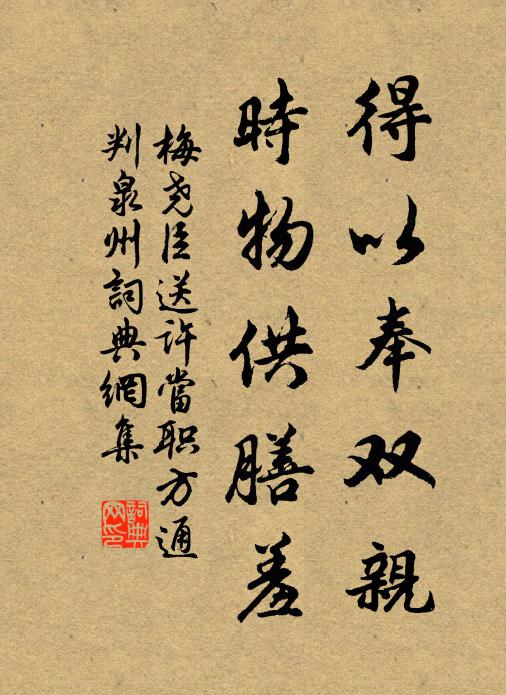 得以奉双親
時物供膳羞
梅尧臣送許當职方通
判泉州詞典網集
詞典
网印